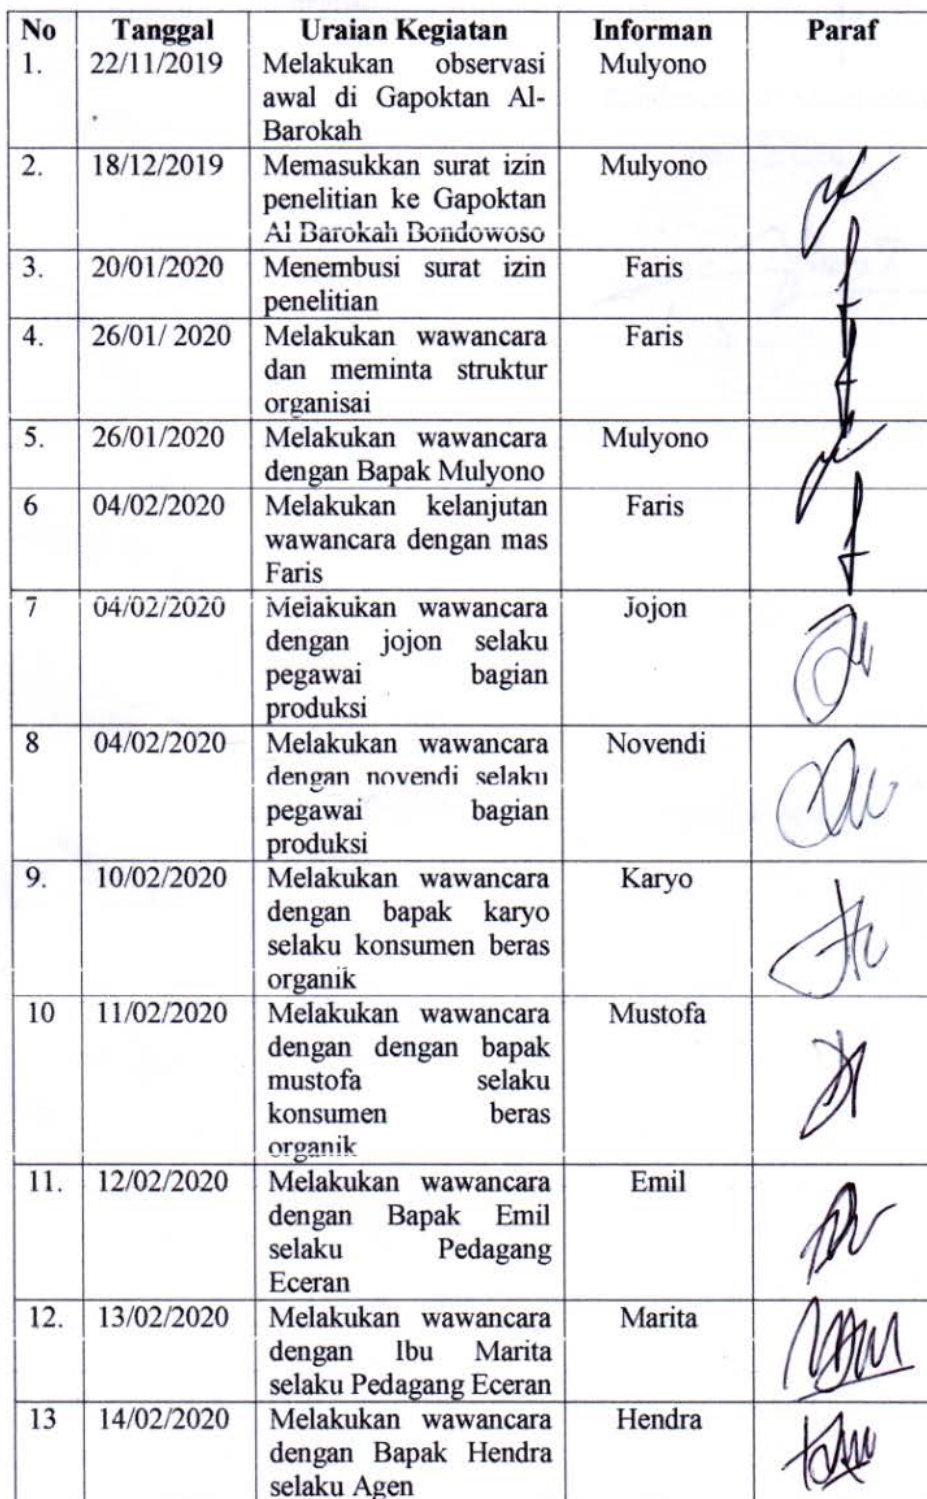 No Tanggal Uraian Kegiatan Informan Paraf
1. 22/11/2019 Melakukan observasi Mulyono
awal di Gapoktan Al-
Barokah
2. 18/12/2019 Memasukkan surat izin Mulyono
penelitian ke Gapoktan
Al Barokah Bondowoso
3. 20/01/2020 Menembusi surat izin Faris
penelitian
4. 26/01/ 2020 Melakukan wawancara Faris
dan meminta struktur
organisai
5. 26/01/2020 Melakukan wawancara Mulyono
dengan Bapak Mulyono
6 04/02/2020 Melakukan kelanjutan Faris
wawancara dengan mas
Faris
7 04/02/2020 Melakukan wawancara Jojon
dengan jojon selaku
pegawai bagian
produksi
8 04/02/2020 Melakukan wawancara Novendi
dengan novendi selaku
pegawai bagian
produksi
9. 10/02/2020 Melakukan wawancara Karyo
dengan bapak karyo
selaku konsumen beras
organik
10 11/02/2020 Melakukan wawancara Mustofa
dengan dengan bapak
mustofa selaku
konsumen beras
organik
11. 12/02/2020 Melakukan wawancara Emil
dengan Bapak Emil
selaku Pedagang
Eceran
12. 13/02/2020 Melakukan wawancara Marita
dengan Ibu Marita
selaku Pedagang Eceran
13 14/02/2020 Melakukan wawancara Hendra
dengan Bapak Hendra
selaku Agen